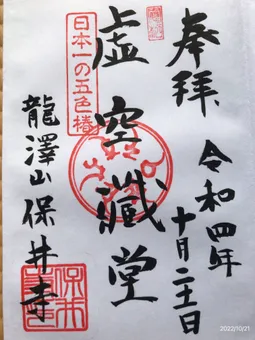 奉拝
令和四年
十月二十一日
日本一の五色椿
虚空蔵堂
龍澤山保井寺
2022/10/21